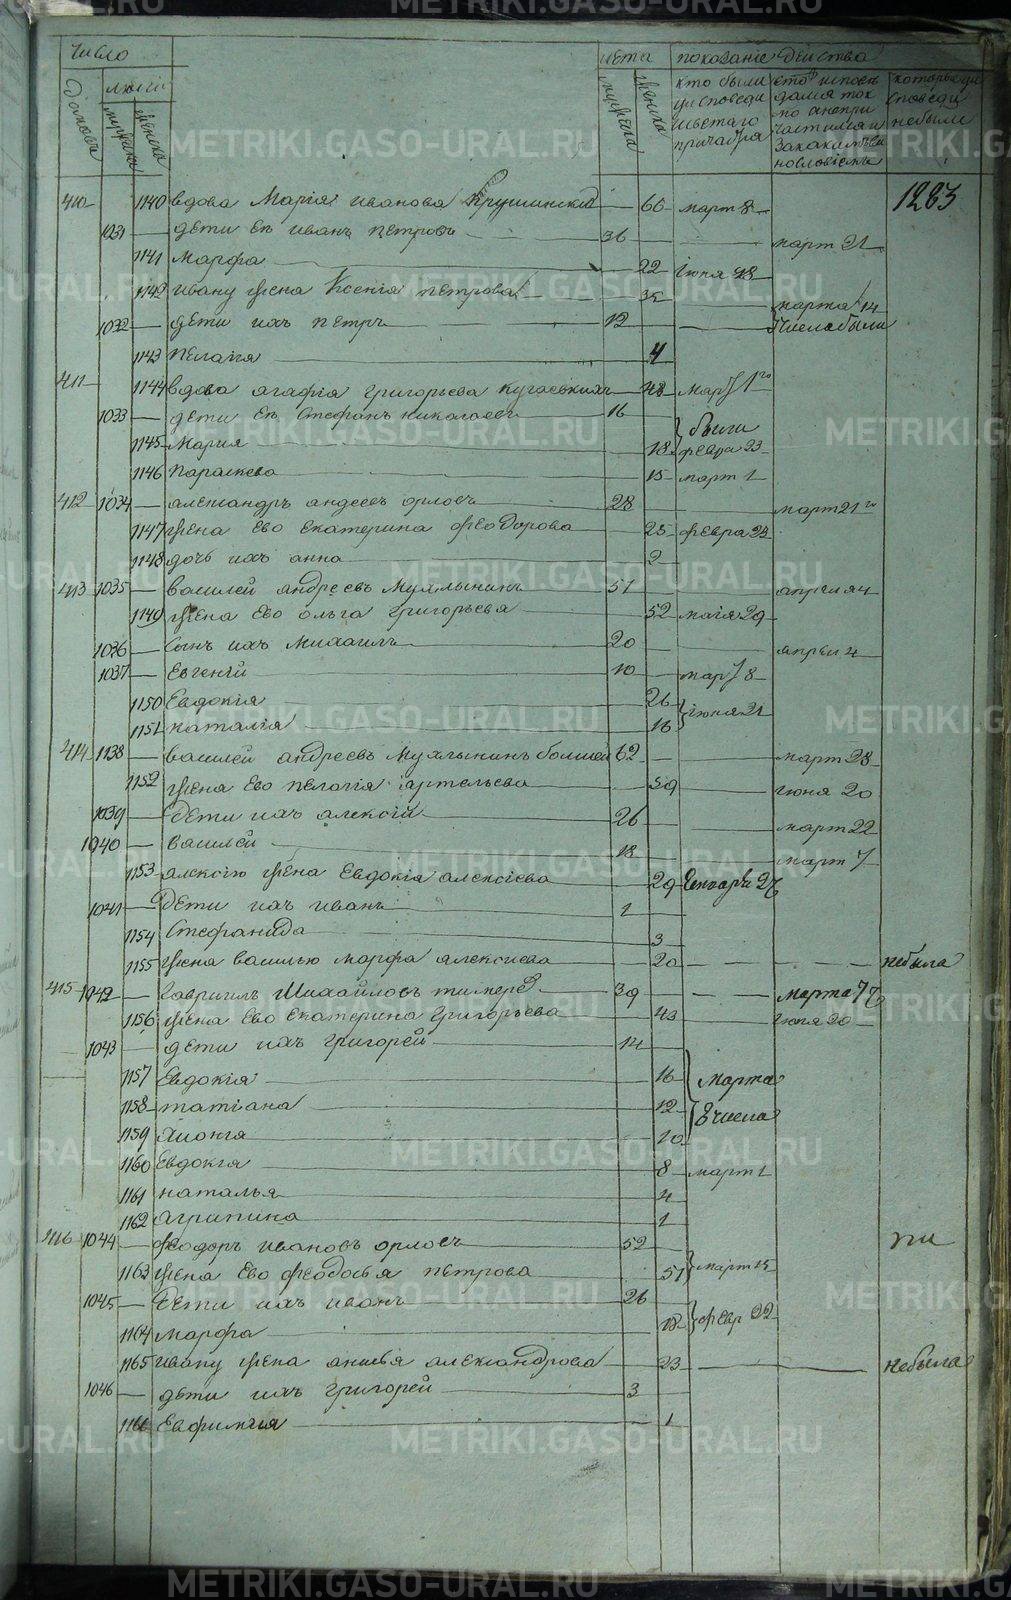 Число лета показаніе действа
домовъ людей мужеска женска мужеска женска кто были уисповеди исвятаго причастія которые уисповеди небыли
1263
410 1140 вдова Марія Иванова Крушинских 66 март 8
1031 дети ея Иванъ Петровъ 36 март 21
1141 Марфа 22 Июня 28
1142 Ивану жена Ксенія Петрова 35 марта 14
1032 дети ихъ Петръ 12 числа были
1143 Пелагія 4
411 1144 вдова Агафія Григорьева 48 мар 1го
1033 дети ея Стефанъ Николаевъ 16
1145 Мария 18 были февра 23
1146 Параскева 15 март 1
412 1034 Александръ Андеевъ Орловъ 28 март 21го
1147 жена Ево Екатерина Феодорова 25 февра 23
1148 дочь ихъ Анна 2
413 1035 Василей Андреевъ Мухлынинъ 51 апреля 4
1149 жена Ево Ольга Григорьева 52 маія 29
1036 Сынъ ихъ Михаилъ 20 апрел 4
1037 Евгеній 10 мар 8
1150 Евдокія 26
1151 Наталія 16 іюня 21
414 1138 Василей Андреевъ Мухлынинъ большей 62 март 28
1152 жена Ево Пелагія 59 Июня 20
1039 Дети ихъ Алексій 26 март 22
1040 Василей 18 март 7
1153 Алексію жена Евдокія Алексіева 29 Генваря 27
1041 Дети ихъ Иванъ 1
1154 Стефанида 3
1155 жена Василью Марфа Алексиева 20 небыла
415 1042 Гавриилъ Михайловъ 39 марта 7
1156 жена Ево Екатерина Григорьева 43 Июня 20
1043 дети ихъ Григорей 14
1157 Евдокія 16 Марта
1158 Татіана 12 8 числа
1159 Хионія 10
1160 Евдокія 8 март 1
1161 Наталья 4
1162 Агрипина 1
416 1044 Феодоръ Ивановъ Орловъ 52
1163 жена Ево Феодосья Петрова 51 март 15
1045 Дети ихъ Иванъ 26
1164 Марфа 18 февр 22
1165 Ивану жена Анисья Александрова 23 небыла
1046 дети ихъ Григорей 3
1166 Евфимія 1
METRIKI.GASO-URAL.RU